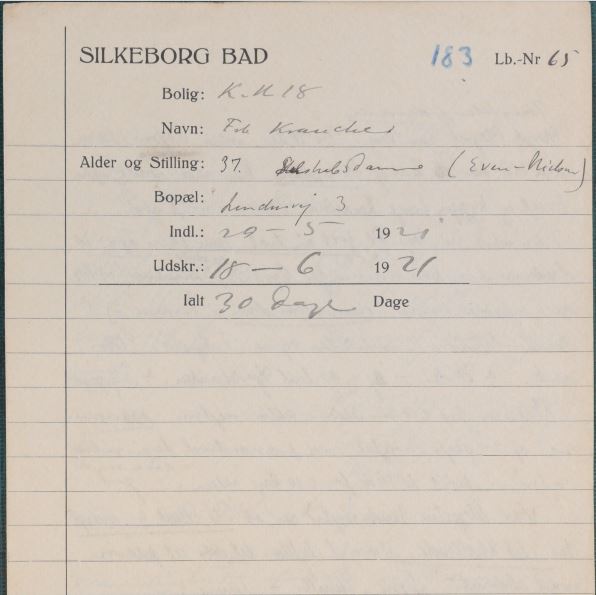 SILKEBORG BAD 183 Lb.-Nr 65
Bolig: K. M 18
Navn: Frk
Alder og Stilling: 37. Selskabsdame (
Bopæl: 3
Indl.: 20 - 5 1921
Udskr.: 18 - 6 1921
Ialt 30 Dage Dage